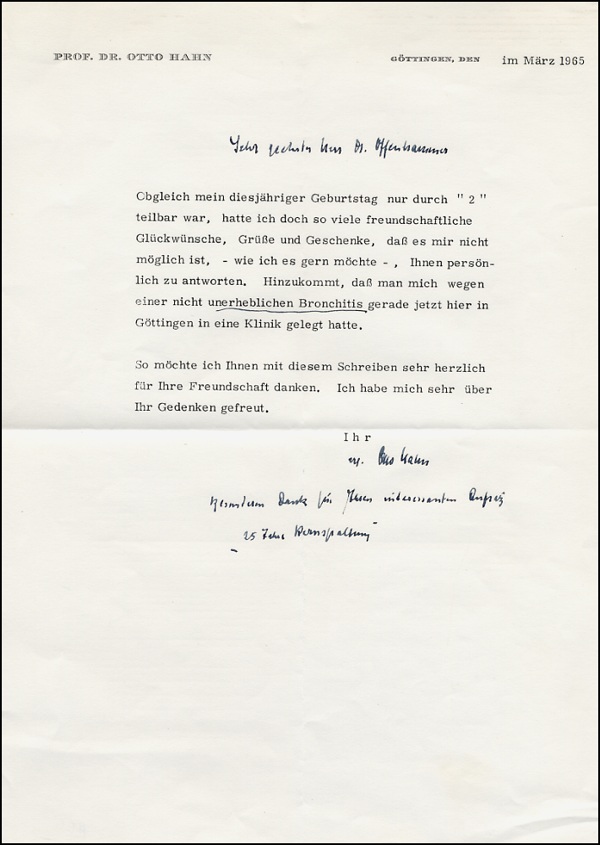 PROF. DR. OTTO HAHN
GÖTTINGEN, DEN im März 1965
Sehr geehrter Herr Dr.
Obgleich mein diesjähriger Geburtstag nur durch " 2 "
teilbar war, hatte ich doch so viele freundschaftliche
Glückwünsche, Grüße und Geschenke, daß es mir nicht
möglich ist, - wie ich es gern möchte - , Ihnen persön-
lich zu antworten. Hinzukommt, daß man mich wegen
einer nicht unerheblichen Bronchitis gerade jetzt hier in
Göttingen in eine Klinik gelegt hatte.
So möchte ich Ihnen mit diesem Schreiben sehr herzlich
für Ihre Freundschaft danken. Ich habe mich sehr über
Ihr Gedenken gefreut.
Ihr
Otto Hahn
Besonderen Dank für Ihren interessanten Aufsatz
"25 Jahre Kernspaltung"